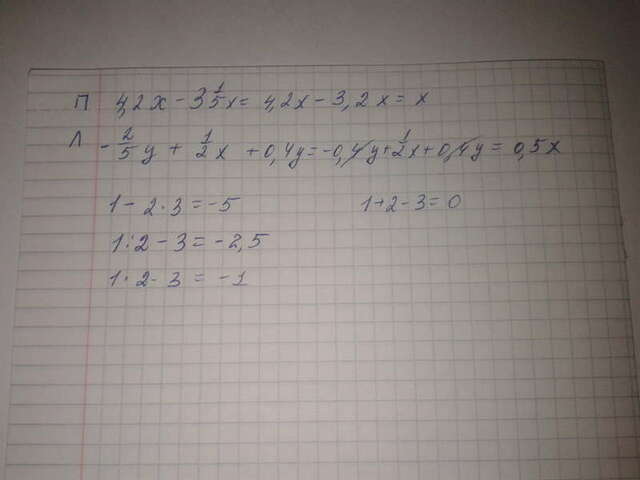 П 4,2x - 3 1/5 x = 4,2x - 3,2x = x
Л - 2/5 y + 1/2 x + 0,4y = -0,4y + 1/2 x + 0,4y = 0,5x
1 - 2 · 3 = -5 1+2-3=0
1 : 2 - 3 = -2,5
1 · 2 - 3 = -1